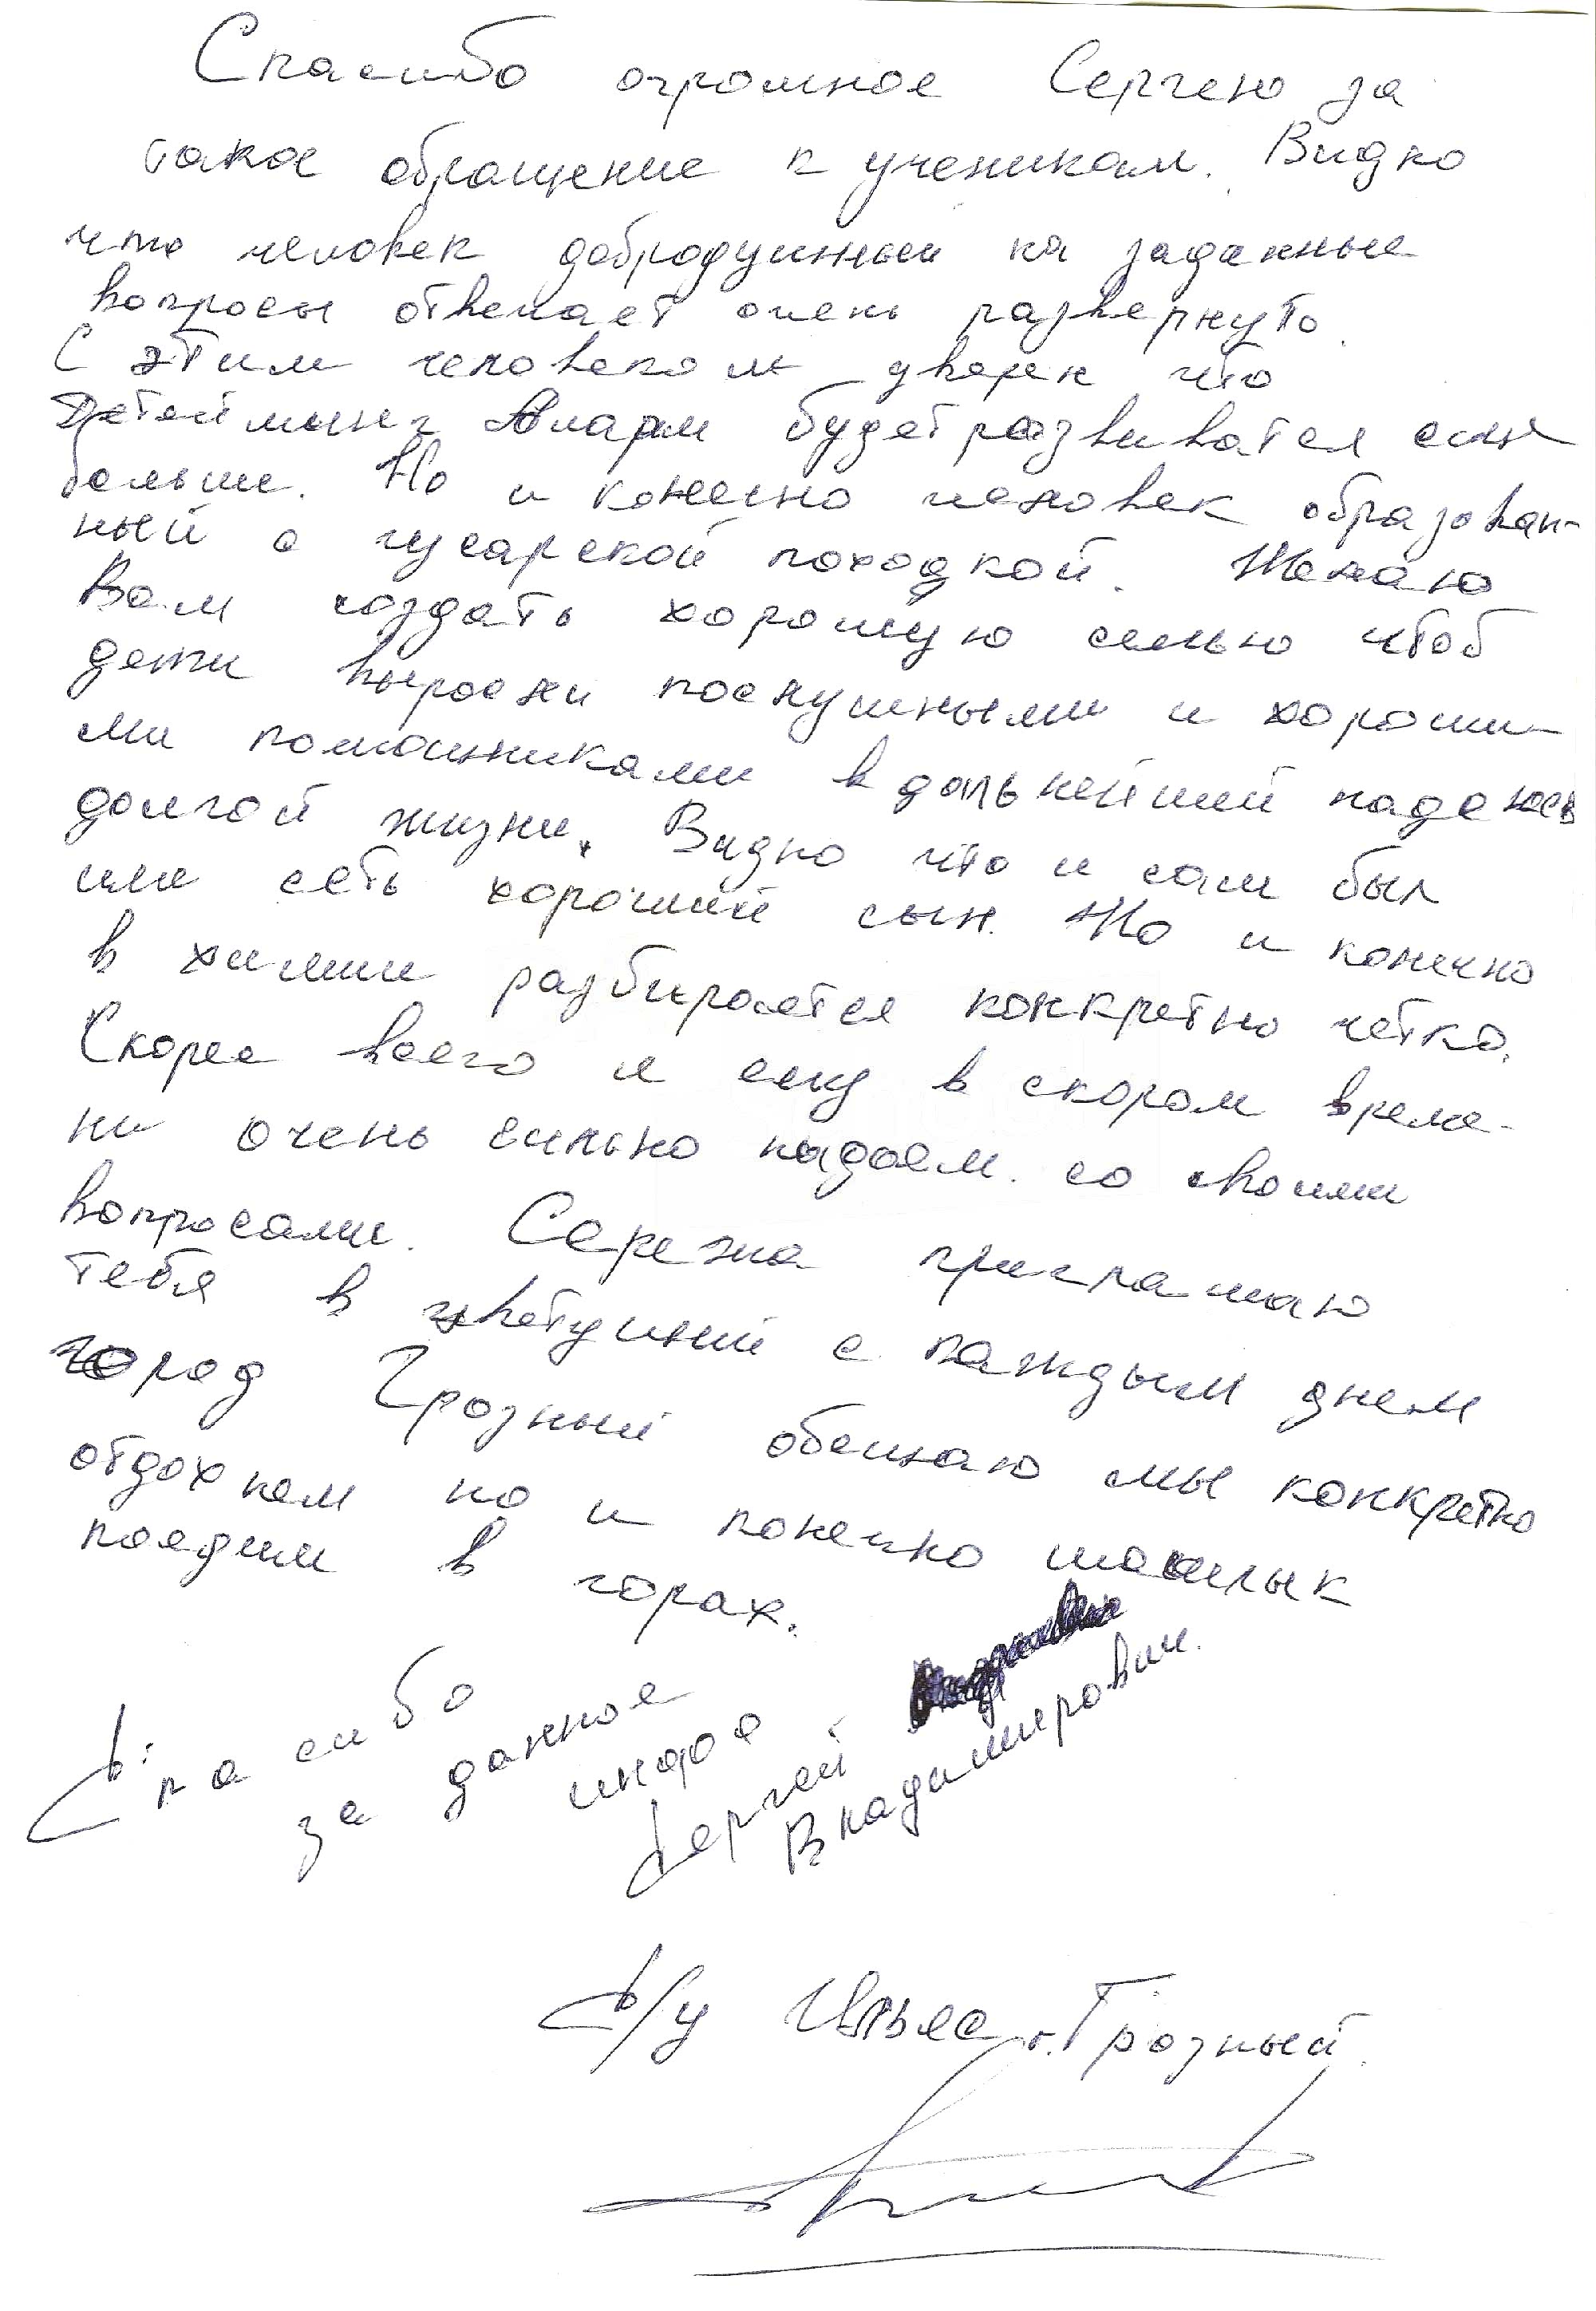 Спасибо огромное Сергею за
такое обращение к ученикам. Видно
что человек добродушный на заданные
вопросы отвечает очень развернуто.
С этим человеком уверен что
Детейлинг Аларм будет развиватся еще
больше. Но и конечно человек образован-
ный с гусарской походкой. Желаю
Вам создать хорошую семью чтоб
дети выросли послушными и хороши-
ми помошниками в дальнейший надеюсь
долгой жизни. Видно что и сам был
или есть хороший сын. Но и конечно
в химии разбирается конкретно четко.
Скорее всего я ему в скором време-
ни очень сильно надоем. со своими
вопросами. Сережа приглашаю
тебя в цветущий с каждым днем
город Грозный обещаю мы конкретно
отдохнем но и конечно шашлык
поедим в горах.
Спасибо
за данное
инфо
Сергей
Владимирович.
С/у Ильяс г. Грозный.